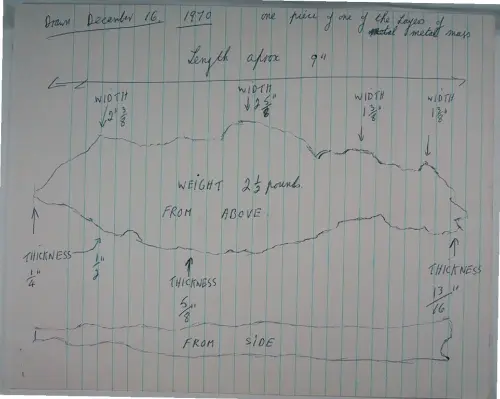 Drawn December 16, 1970 one piece of one of the layers of
metal mass
Length aprox 9"
WIDTH WIDTH WIDTH WIDTH
2" 3/8 2 5/8" 1 3/8" 1 3/8"
WEIGHT 2 1/2 pounds.
FROM ABOVE.
THICKNESS 1/4"
1/2"
THICKNESS 5/8"
THICKNESS 13/16"
FROM SIDE